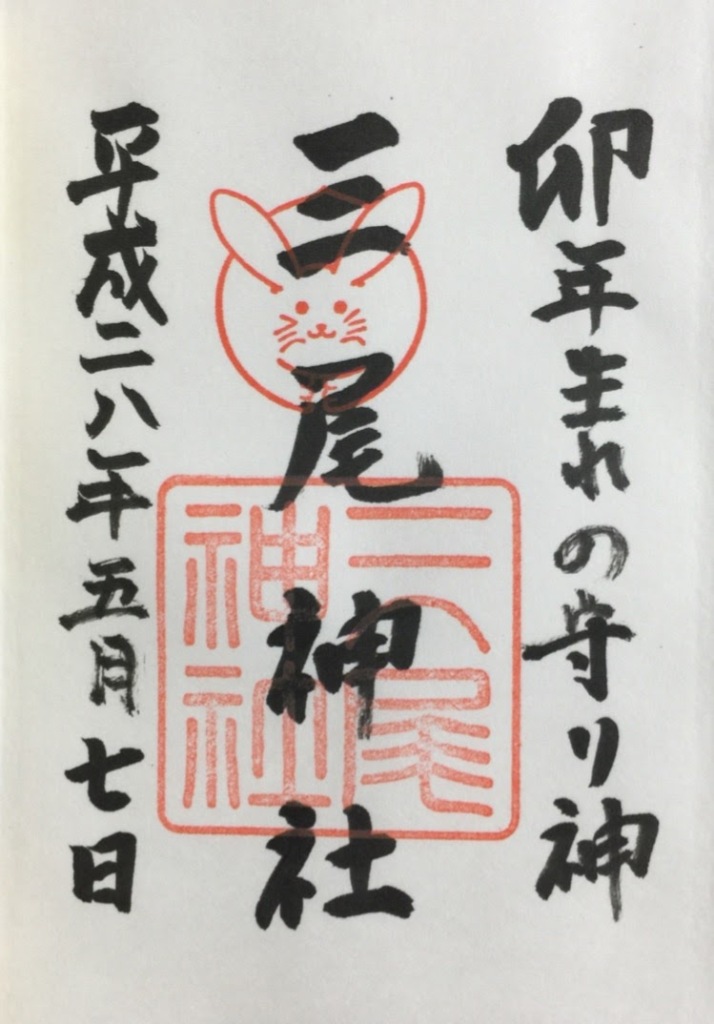 卯年生れの守り神
三尾神社
三尾神社
平成二八年五月七日